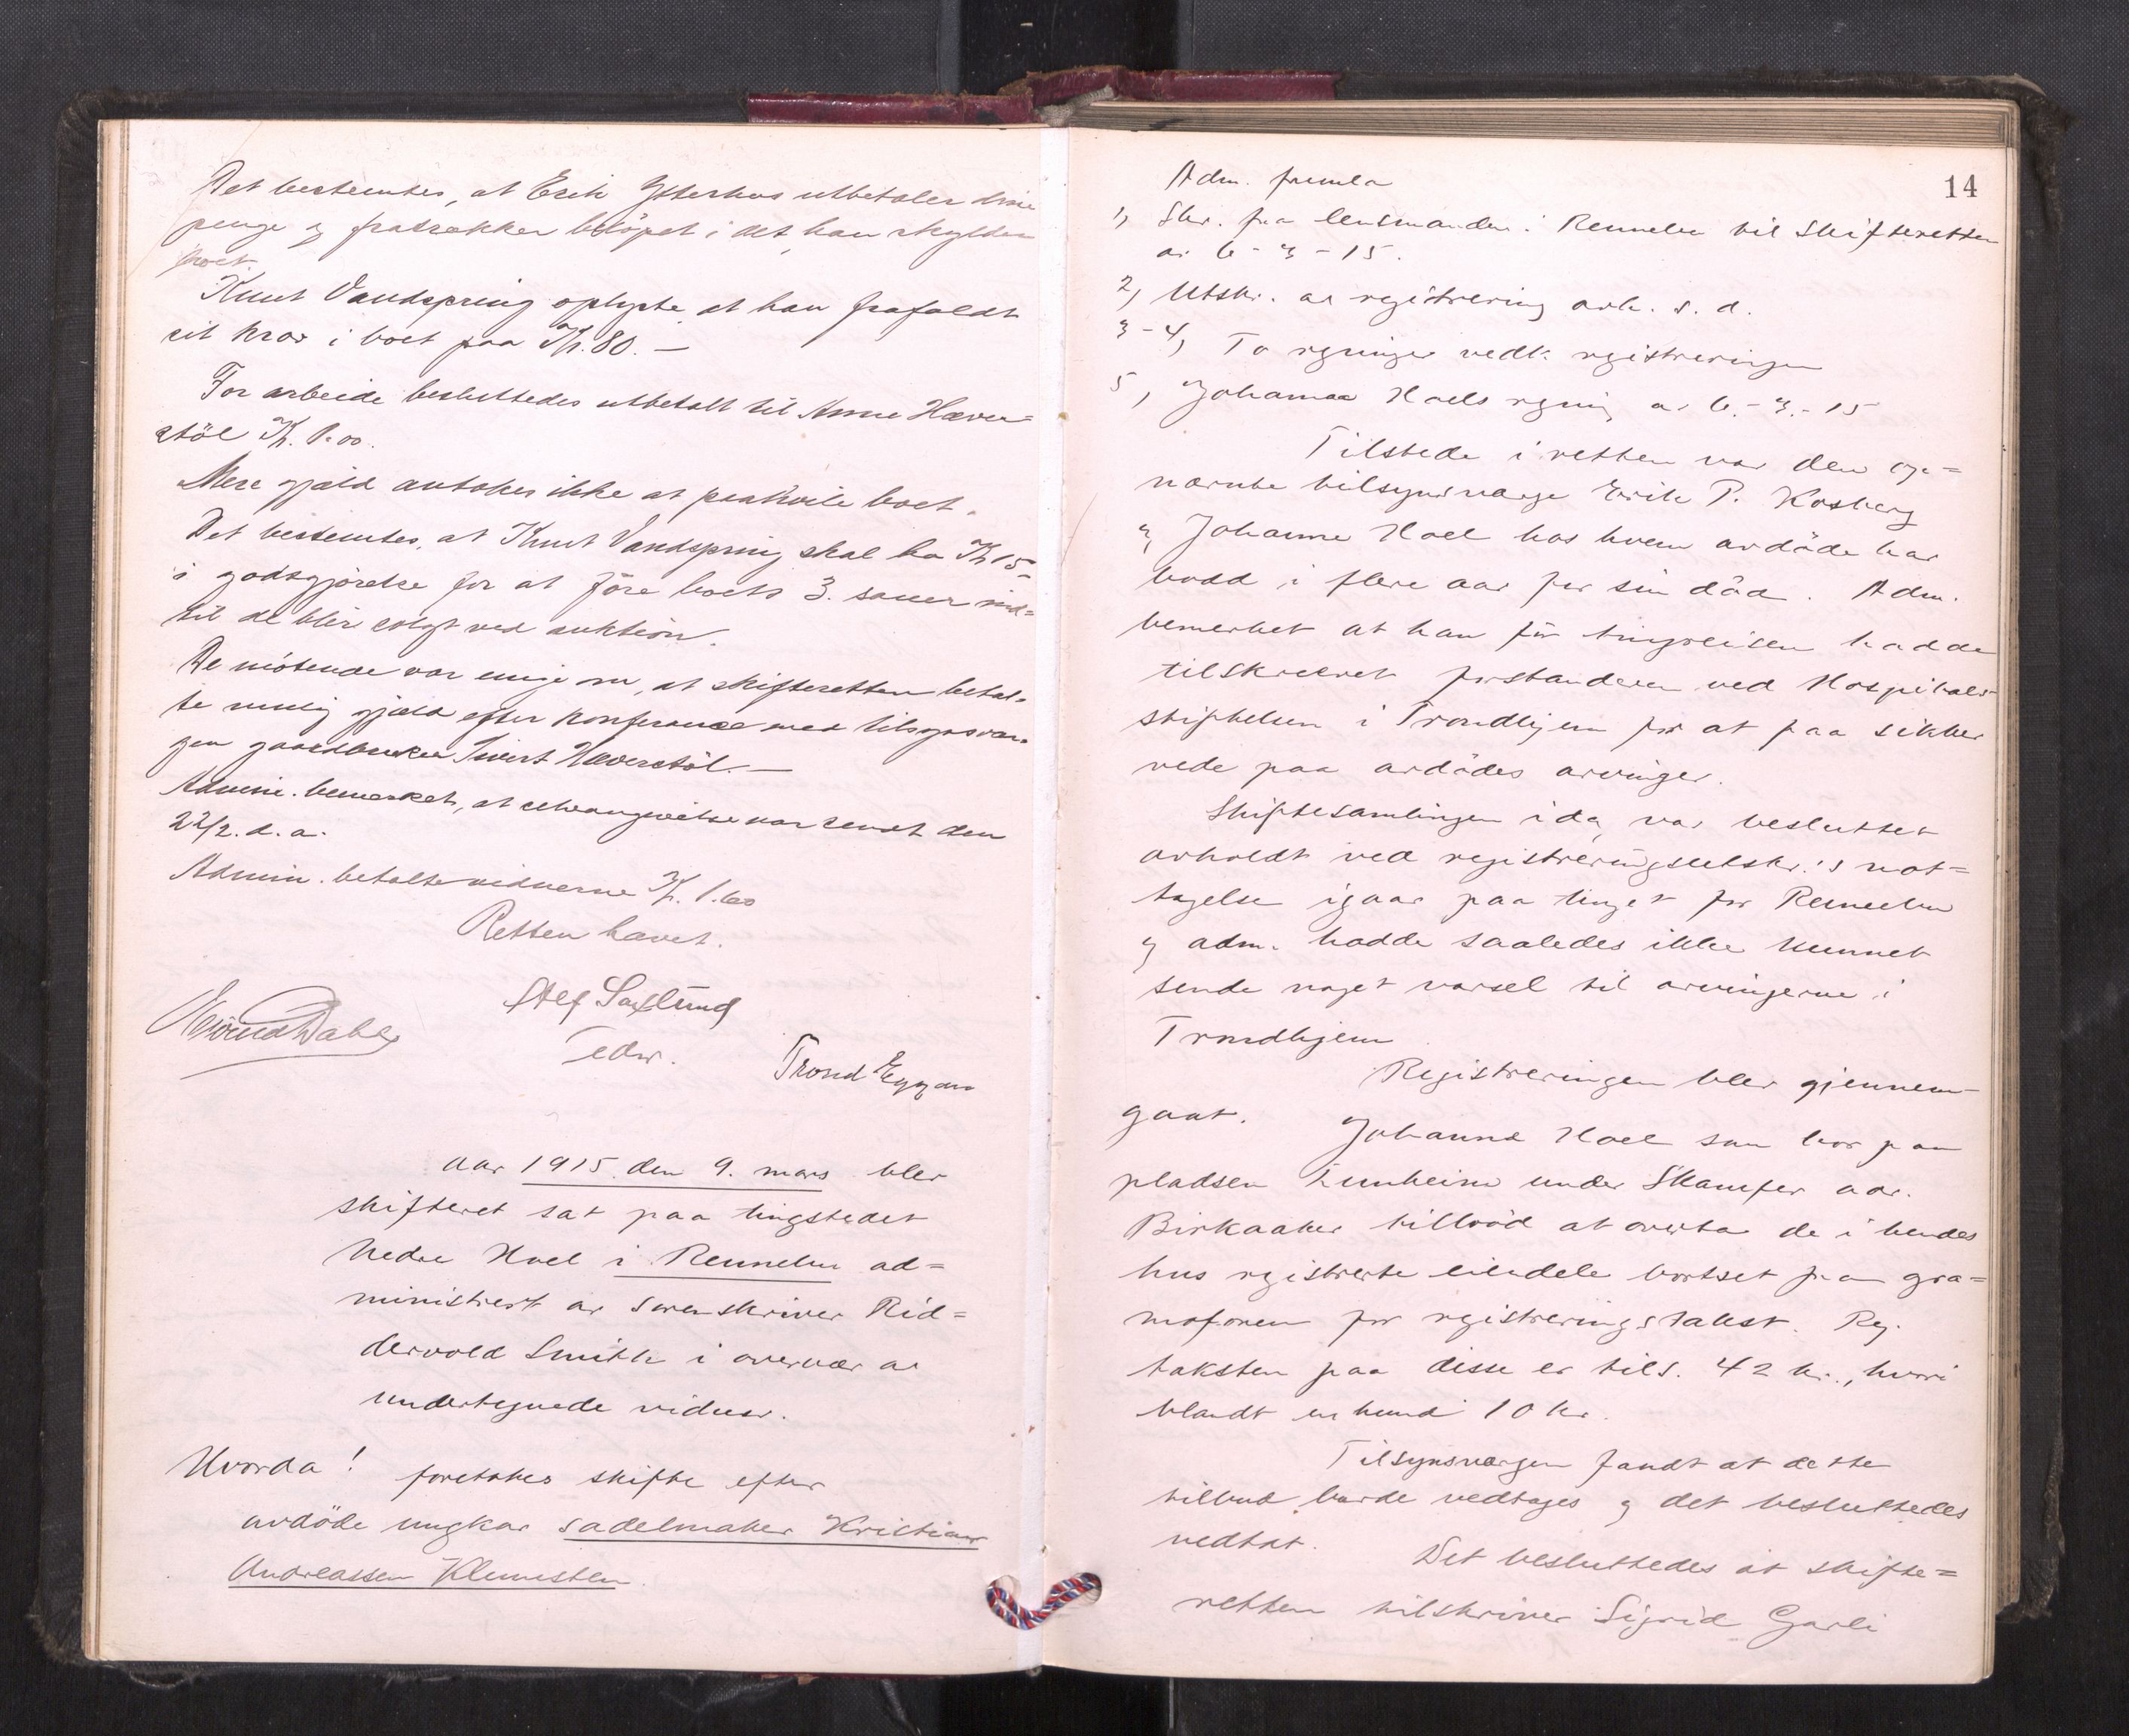 Det bestemtes, at Erik Ysterhus utbetaler disse
penge og fratrækker beløpet i det han skylder
boet.
Knut Vandspring oplyste at han frafaldt
sit krav i boet paa Kr. 80.—
For arbeide besluttedes utbetalt til Anne Hæver=
støl Kr. 1.00.
Mere gjæld antokes ikke at paahvile boet.
Det bestemtes, at Knut Vandspring skal ha Kr 15-
i godtgjørelse for at fôre boets 3. sauer ind=
til de blir solgt ved auktion.
De møtende var enige om, at skifteretten betal-
te mulig gjæld efter konferance med tilsynsvær-
gen gaardbruker Sivert Hæverstøl.—
Admin. bemerket, at selvangivelse var sendt den
22/2. d. a.
Admin. betalte vidnerne Kr. 1.60
Retten hævet.
Alf Saxlund
Eivind Dahle
edsv.
Trond Eggan
Aar 1915 den 9. mars blev
skifteret sat paa tingstedet
Nedre Hoel i Rennebu ad=
ministrert av sorenskriver Rid=
dervold Smith i overvær av
undertegnede vidner.
Hvorda! foretokes skifte efter
avdøde ungkar sadelmaker Kristian
Andreassen Klemetslen.
14
Adm. fremla
1, Skr. fra lensmanden i Rennebu til Skifteretten
av 6-3-15.
2, Utskr. av registrering avh. s. d.
3-4, To regninger vedk. registreringen
5, Johanna Hoels regning av 6.-3.-15
Tilstede i retten var den op=
nævnte tilsynsværge Erik P. Kosberg
og Johanne Hoel hos hvem avdøde har
bodd i flere aar før sin død. Adm.
bemerket at han før tingreisen hadde
tilskrevet forstanderen ved Hospitals-
stiftelsen i Trondhjem for at faa sikker
rede paa avdødes arvinger.
Skiftesamlingen idag var besluttet
avholdt ved registreringsutskr.'s mot=
tagelse igaar paa tinget for Rennebu
og adm. hadde saaledes ikke kunnet
sende noget varsel til arvingerne i
Trondhjem
Registreringen blev gjennem-
gaat. Johanna Hoel som bor paa
pladsen Tunheim under Skamfer av.
Birkaaker tilbød at overta de i hendes
hus registrerte eiendele bortset fra gra=
mofonen for registreringstakst. Reg.
taksten paa disse er tils. 42 kr., hvori
blandt en hund 10 kr.
Tilsynsværgen fandt at dette
tilbud burde vedtages og det besluttedes
vedtat. Det besluttedes at skifte=
retten tilskriver Sigrid Garli